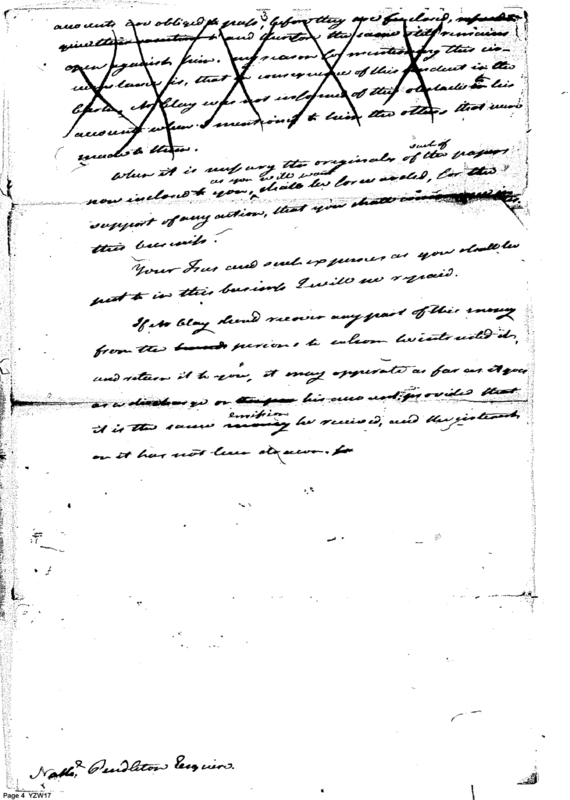 accounts are obliged to pass, before they are few closed,
and question the same still remains
open against him. my reason for mentioning this cir-
cumstance is, that in consequence of this incident in the
Mr Clay was not informed of this obstacle to his
accounts when I mentioned to him the others that were
made to them.
When it is necessary the originals of such of the papers
now inclosed to you, as you will want shall be forwarded, for the
support of any action, that you shall
this business.
Your Fees and such expenses as you shall be
put to in this business I will see repaid.
If Mr Clay should recover any part of this money
from the persons to whom he intrusted it,
and return it to you, it may opperate as far as it goes
as a discharge on his account, provided that
it is the same emission he received, and the interest
on it has not been drawn.
Nathl. Pendleton Esquire.
Page 4 YZW17